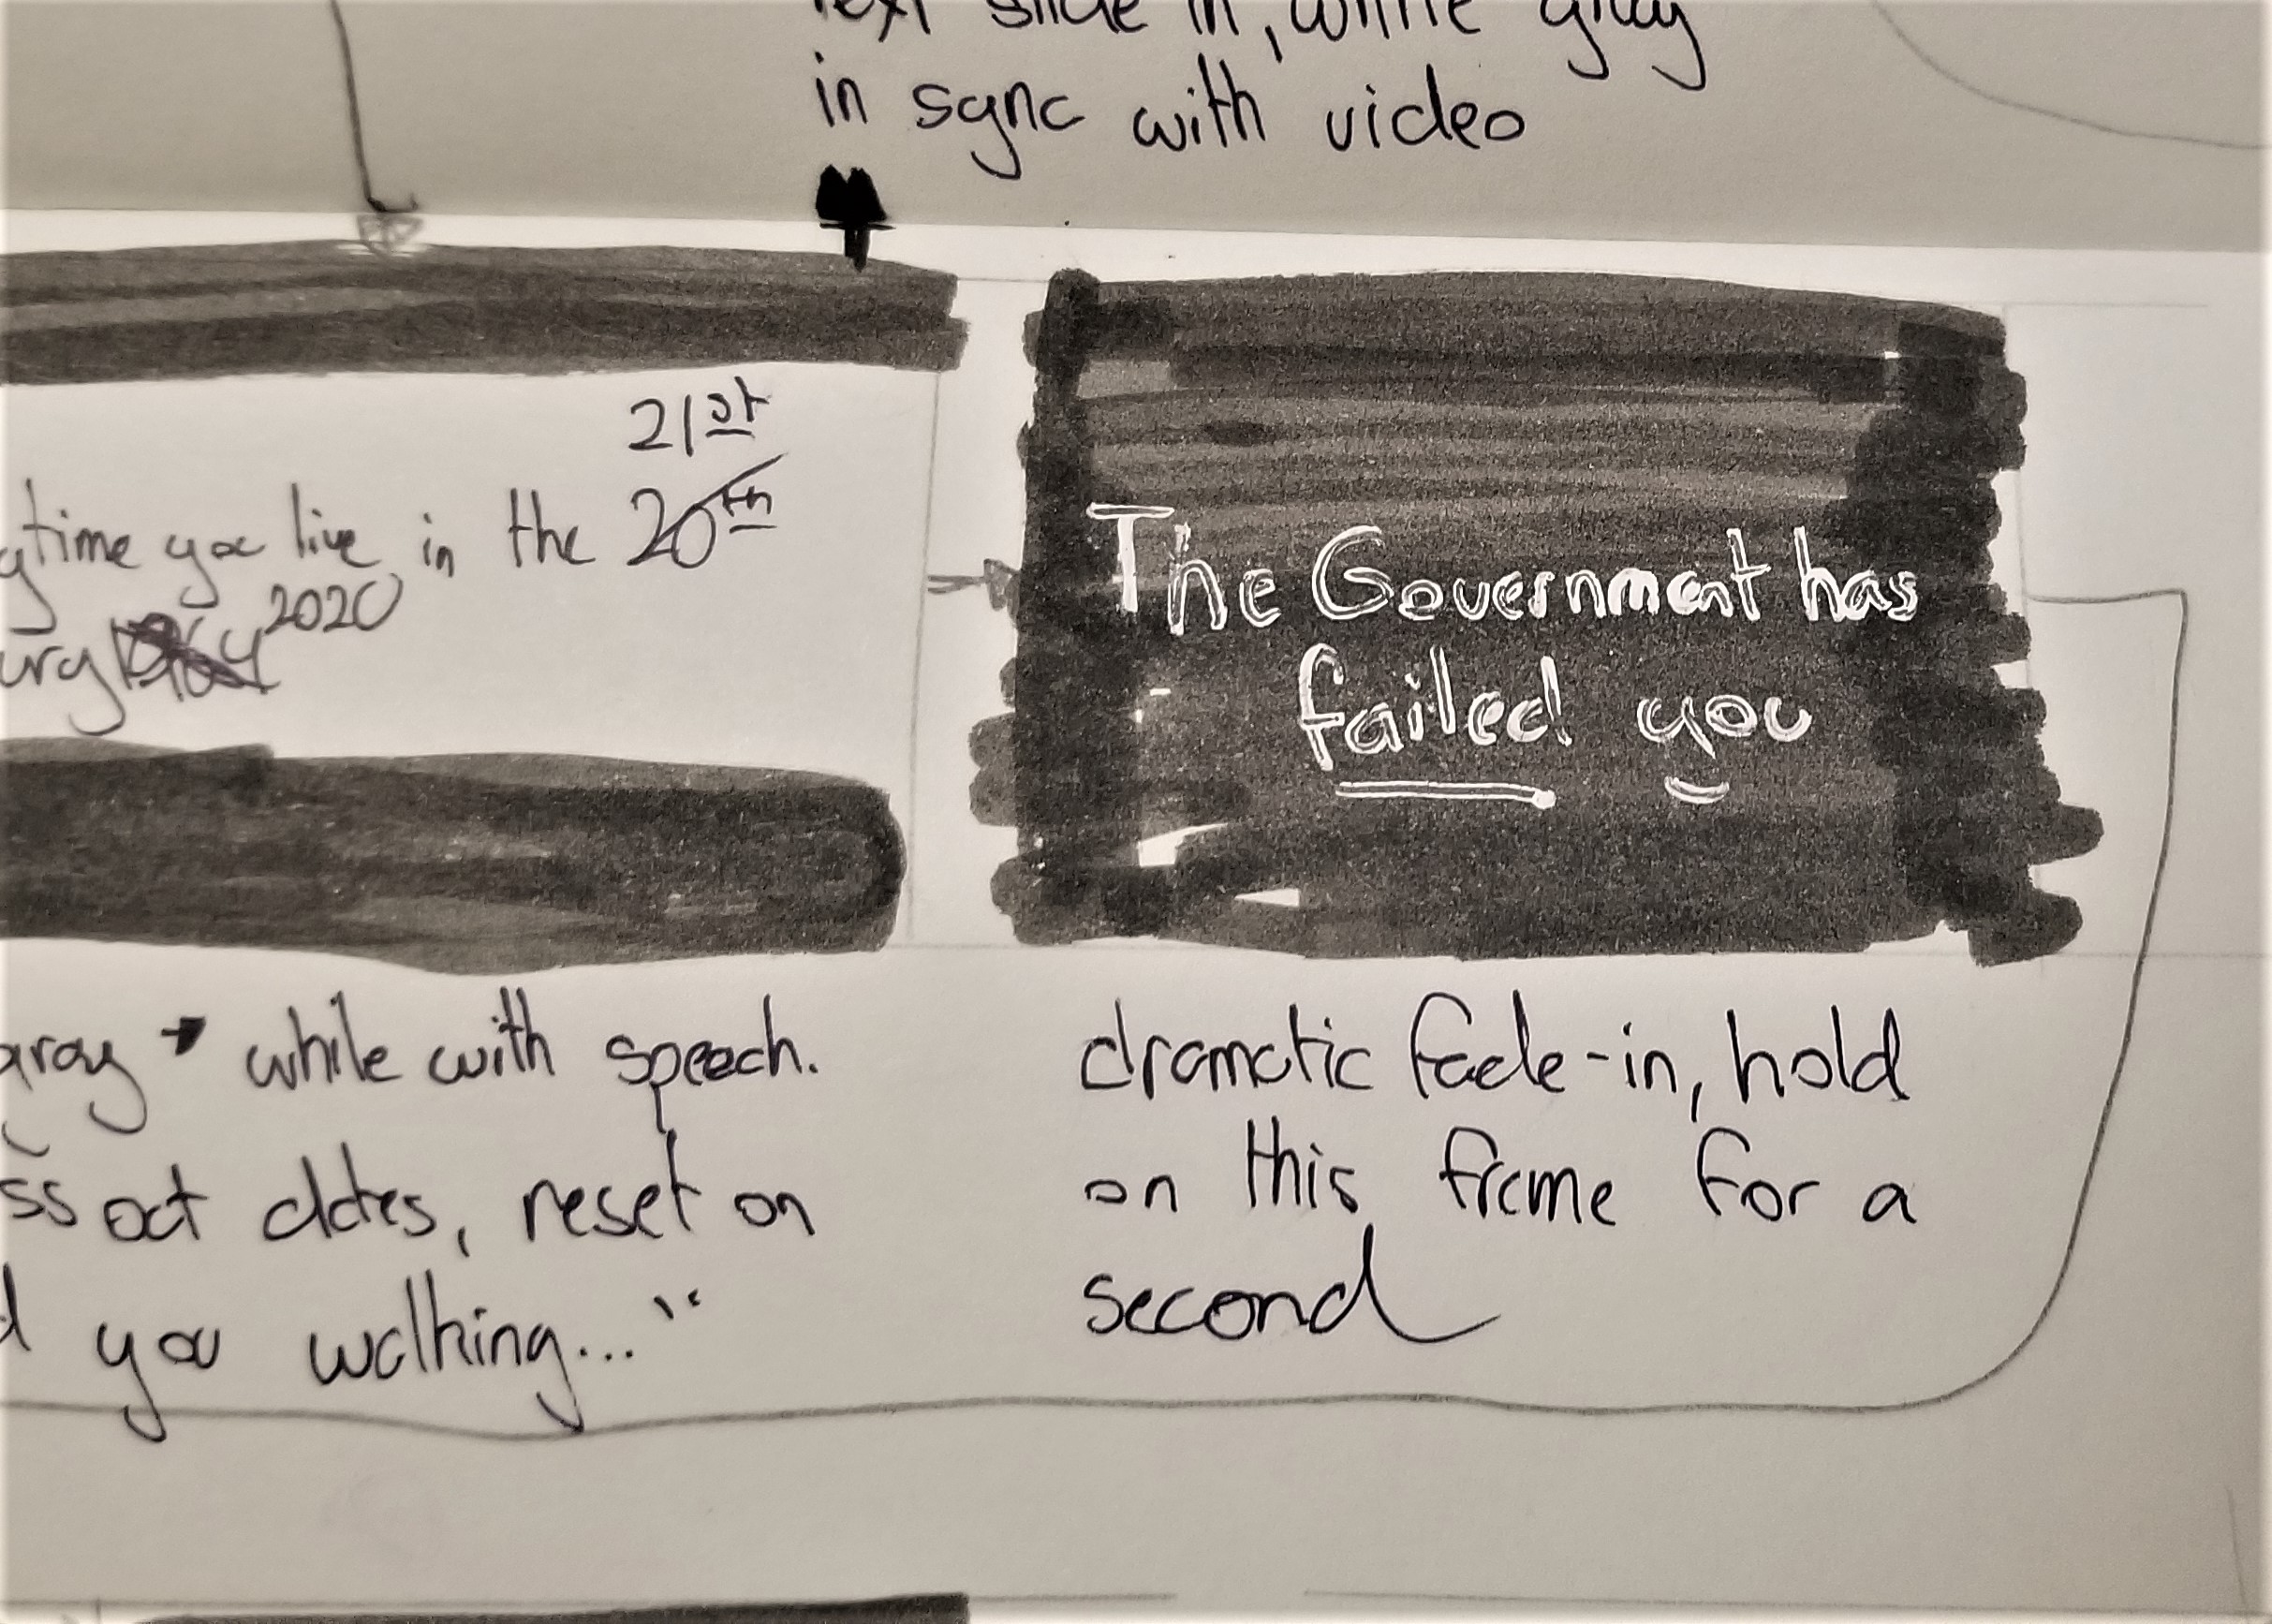 text slide in, white gray
in sync with video
21st
time you live in the 20th
2020
The Government has
failed you
gray → while with speech.
oot dates, reset on
you walking..."
dramatic fade-in, hold
on this frame for a
second